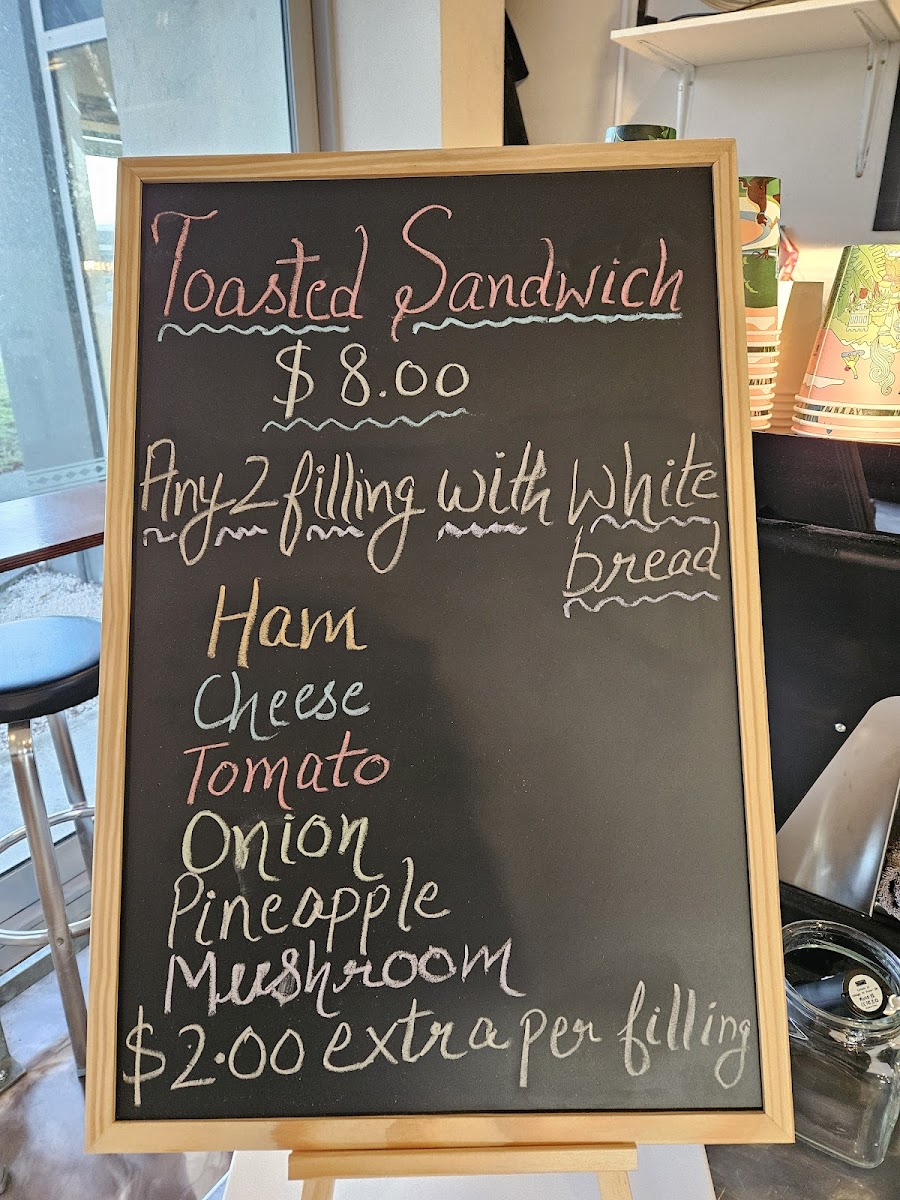 Toasted Sandwich
$8.00
Any 2 filling with White
bread
Ham
Cheese
Tomato
Onion
Pineapple
Mushroom
$2.00 extra per filling